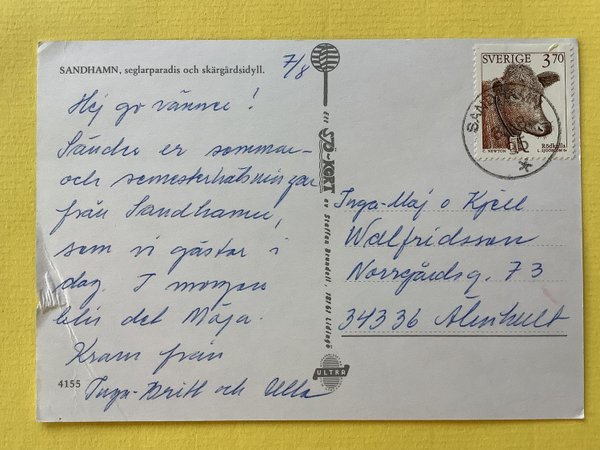 SANDHAMN, seglarparadis och skärgårdsidyll.
7/8
Hej go vänner!
Sänder er sommar-
och semesterhälsningar
från Sandhamn,
som vi gästar i
dag. I morgon
blir det Möja.
Kram från
Inga-Britt och Ulla
4155
ett SJÖ-KORT av Staffan Brundell, 18161 Lidingö
ULTRA
SVERIGE 3,70
NEWTON
Rödkulla
Inga-Maj o Kjell
Walfridsson
Norrgårdsg. 73
34336 Älmhult